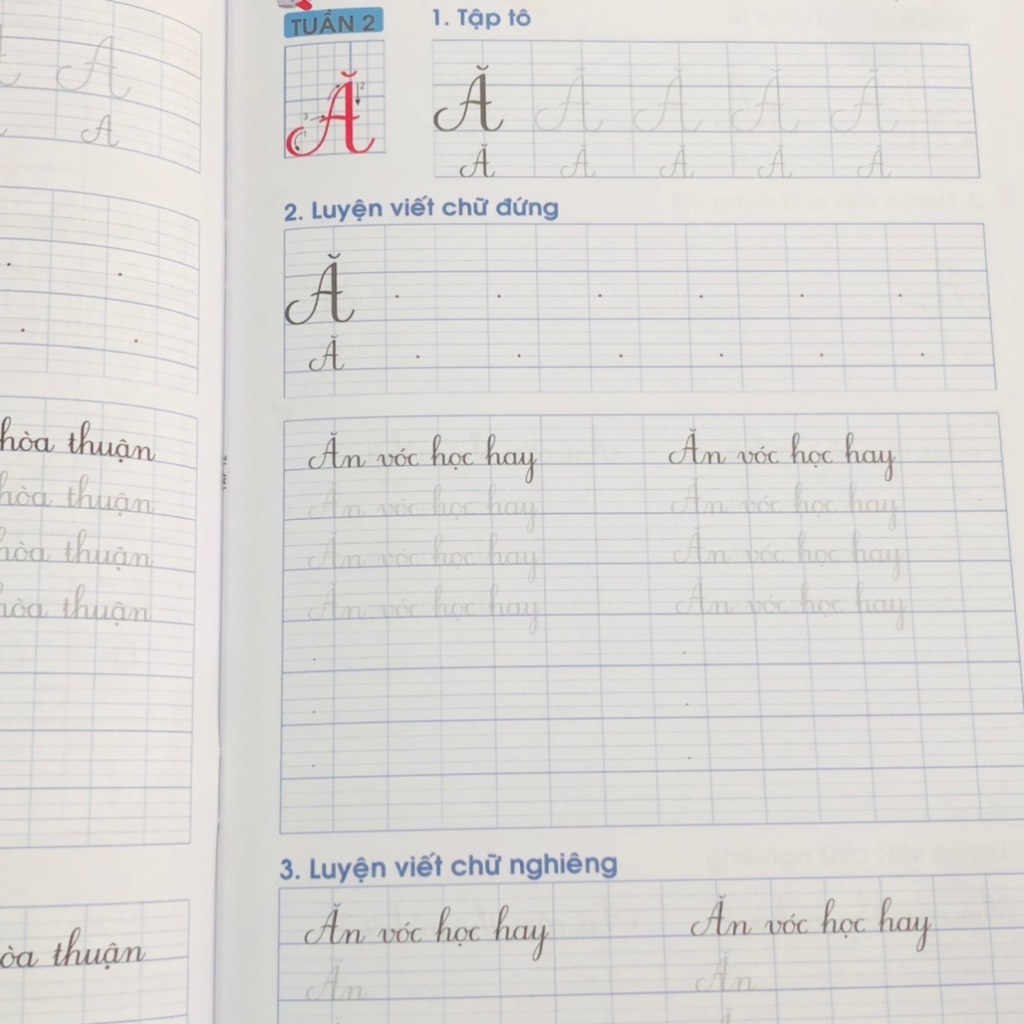 A
A
hòa thuận
hòa thuận
hòa thuận
hòa thuận
òa thuận
TUẦN 2
Ă
1. Tập tô
Ă Ă Ă Ă Ă
Ă Ă Ă Ă Ă
2. Luyện viết chữ đứng
Ă
Ă
Ăn vóc học hay Ăn vóc học hay
Ăn vóc học hay Ăn vóc học hay
Ăn vóc học hay Ăn vóc học hay
Ăn vóc học hay Ăn vóc học hay
3. Luyện viết chữ nghiêng
Ăn vóc học hay Ăn vóc học hay
Ăn Ăn